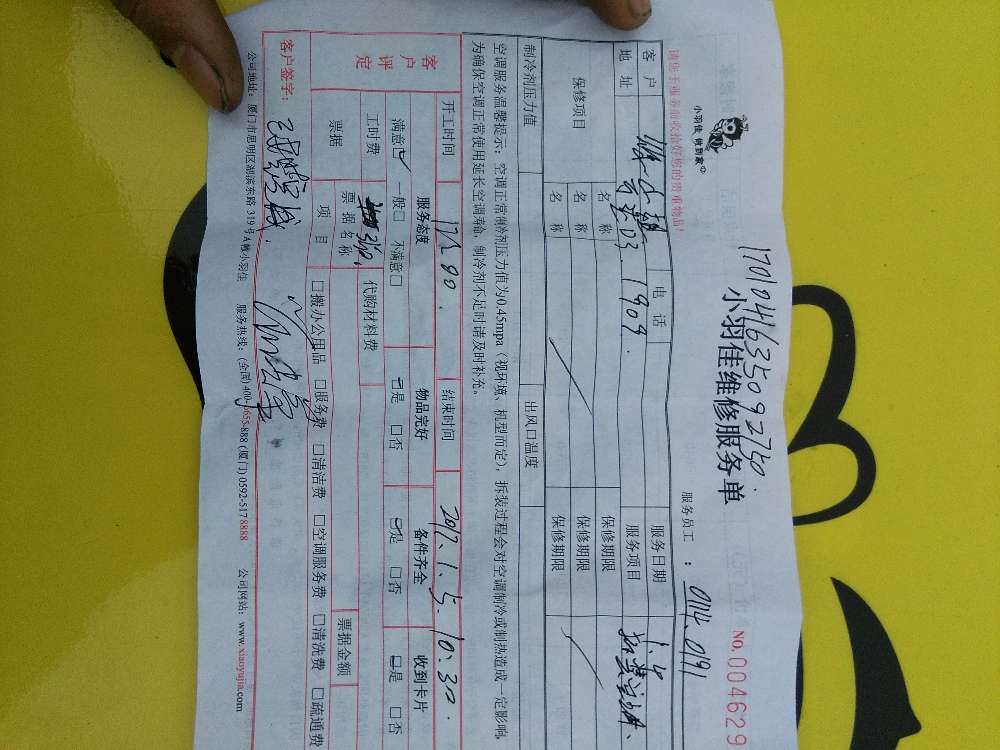 17010441635092750.
小羽佳维修服务单
小羽佳 做到家
服务员工：0114.0191
NO.0004629
请您于服务前收拾好您的贵重物品!
客户 电话 服务日期 1.5
地址 03.1909. 服务项目
保修项目 名称 保修期限
名称 保修期限
名称 保修期限
制冷剂压力值 出风口温度
空调服务温馨提示：空调正常制冷剂压力值为0.45mpa（视环境、机型而定），拆装过程会对空调制冷或制热造成一定影响，
为确保空调正常使用延长空调寿命，制冷剂不足时请及时补充。
开工时间 结束时间 2017.1.5.10:30.
客户评定 服务态度 物品完好 备件齐全 收到卡片
满意☑ 一般□ 不满意□ ☑是 □否 ☑是 □否 ☑是 □否
工时费 代购材料费
票据 票据名称 票据金额
项目 □搬办公用品 □服务费 □清洁费 □空调服务费 □清洗费 □疏通费
客户签字：
公司地址：厦门市思明区湖滨东路319号A幢小羽佳 服务热线：(全国)400-1665-888 (厦门)0592-5178888 公司网站：www.xiaoyujia.com